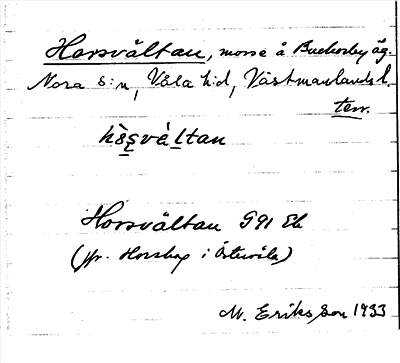 Horsvältan, mosse å Buckarby äg.
Nora s:n, Våla h:d, Västmanlands l.
terr.
Horsvältan G91 Ek
(jfr. Horsby i Östervåla)
M. Eriksson 1933